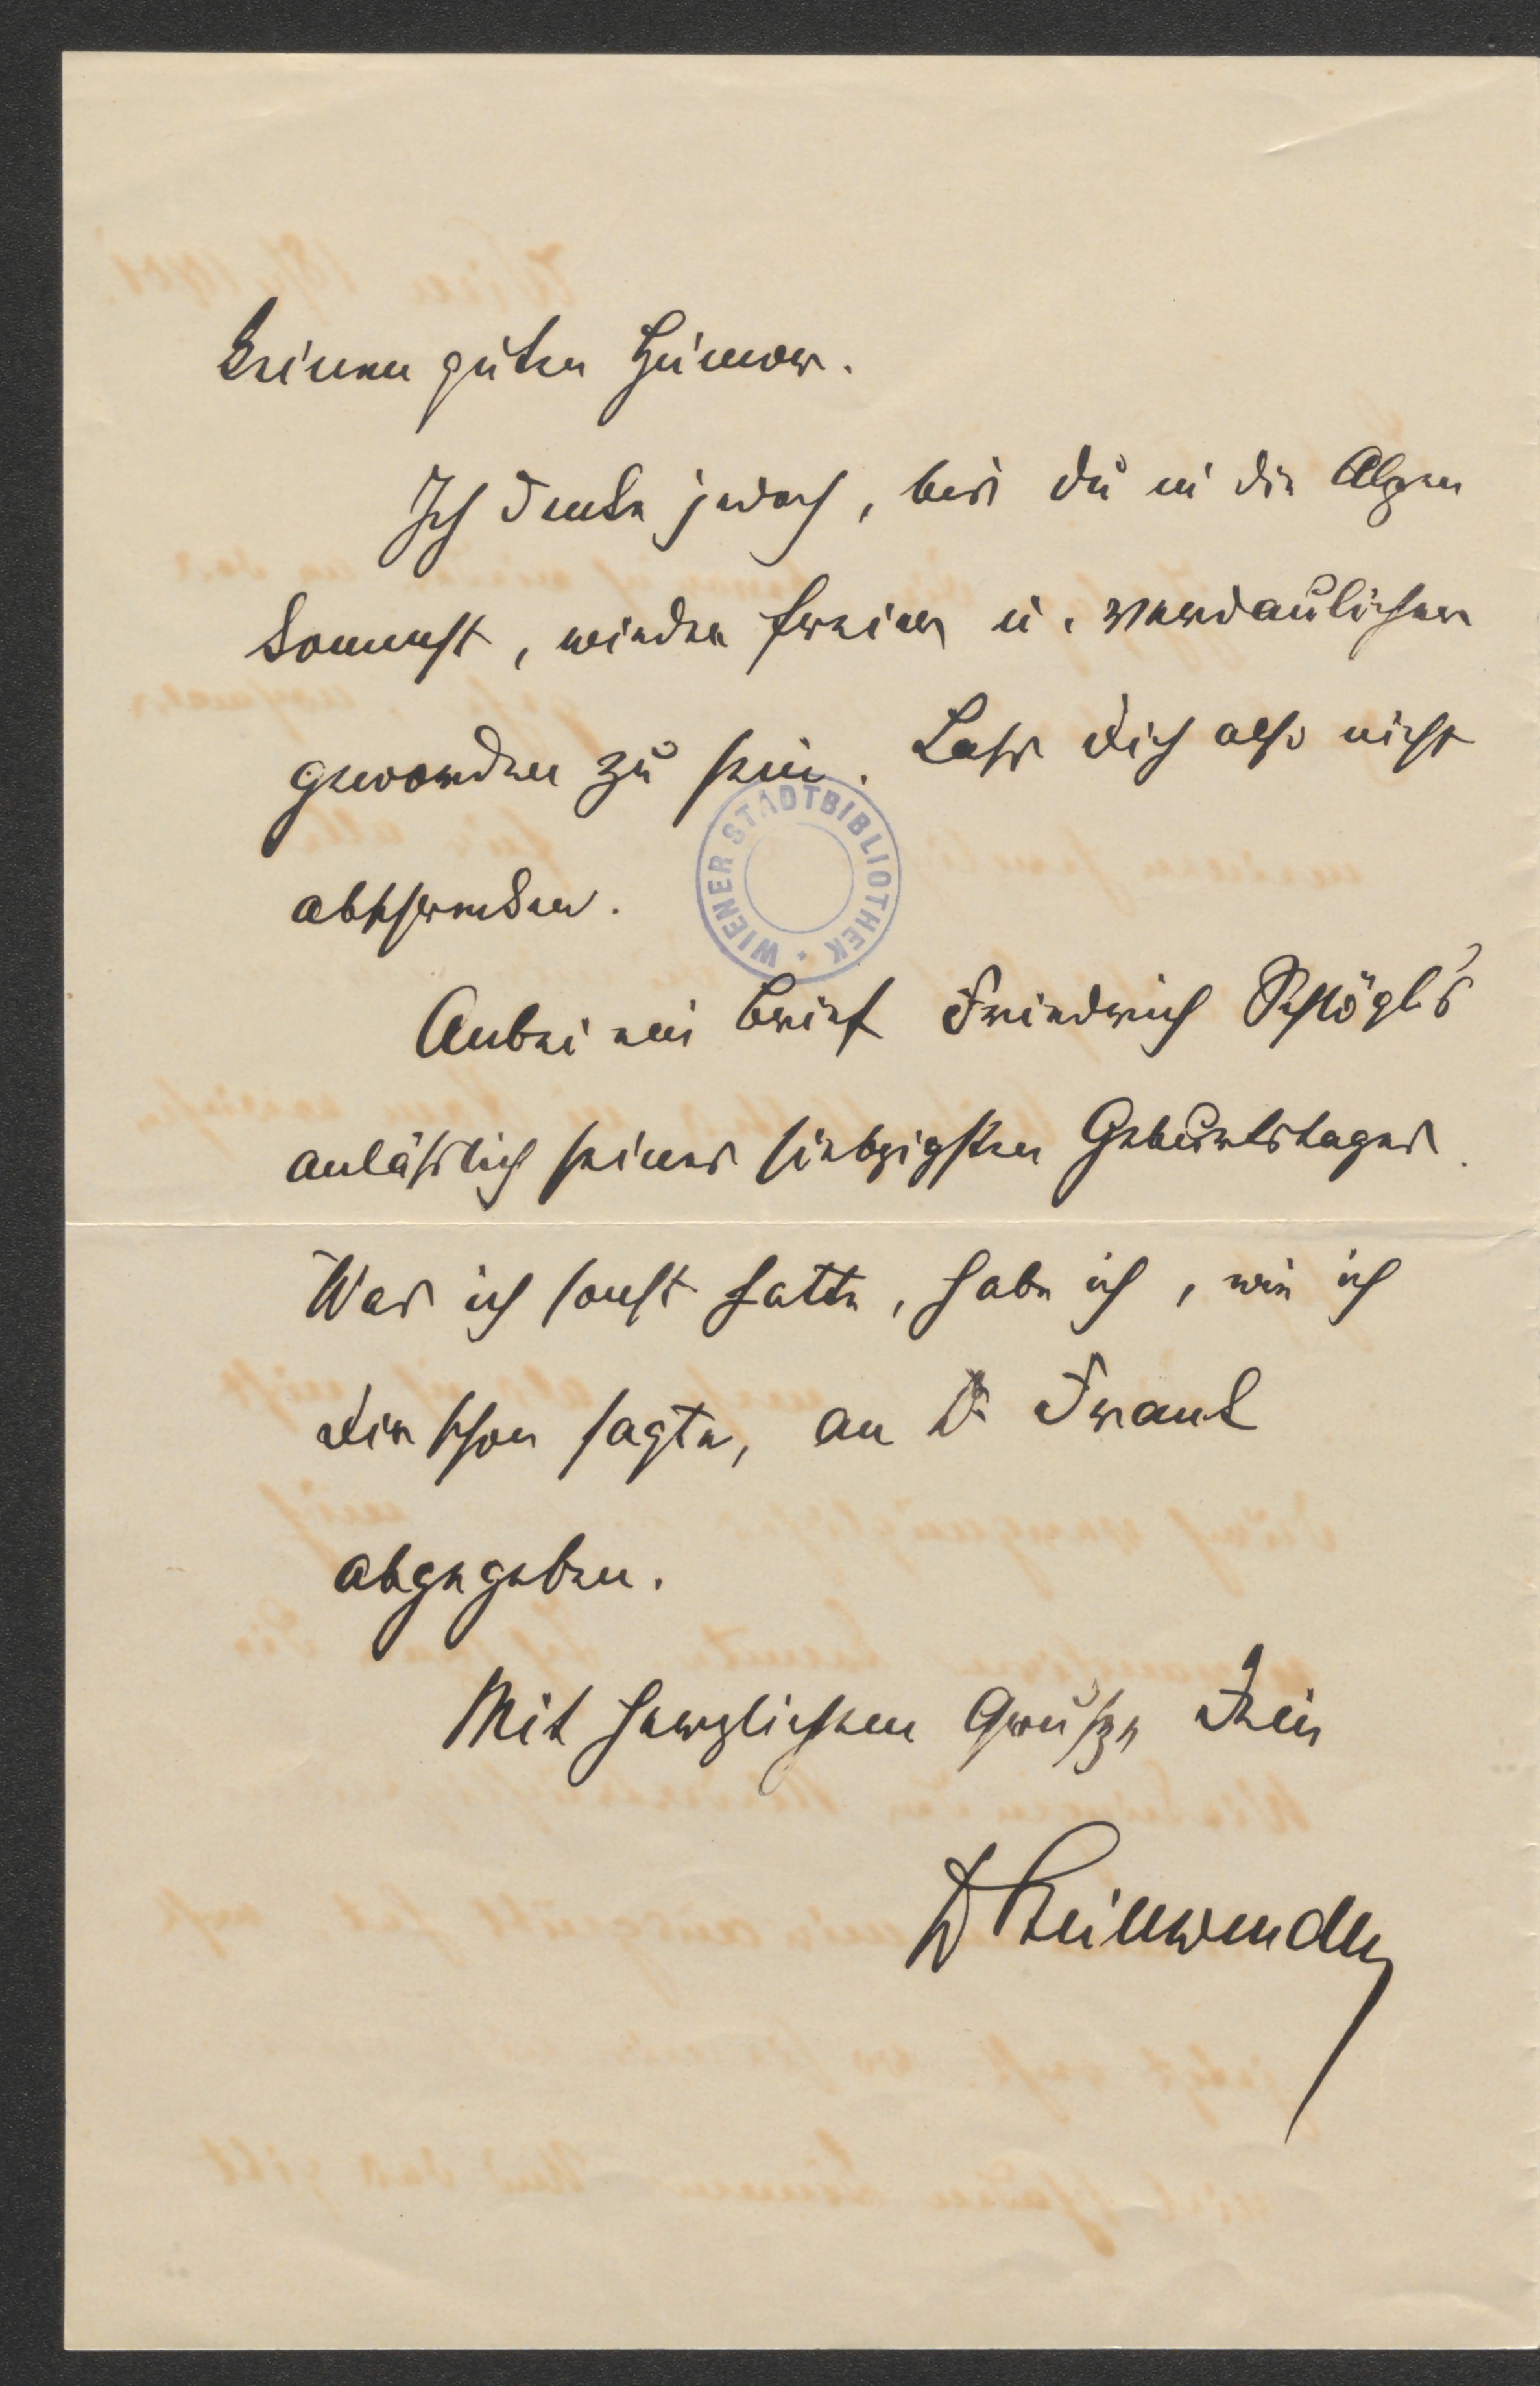 keinen guten Humor.
Ich denke jedoch, bis du in die Alpen
kommst, wieder freier u. verdaulicher
geworden zu sein. Lass dich also nicht
abschrecken.
WIENER STADTBIBLIOTHEK
Anbei ein Brief Friedrich Schlögl's
anläßlich seines siebzigsten Geburtstages.
Was ich sonst hatte, habe ich, wie ich
dir schon sagte, an Dr Frankl
abgegeben.
Mit herzlichem Gruße Dein